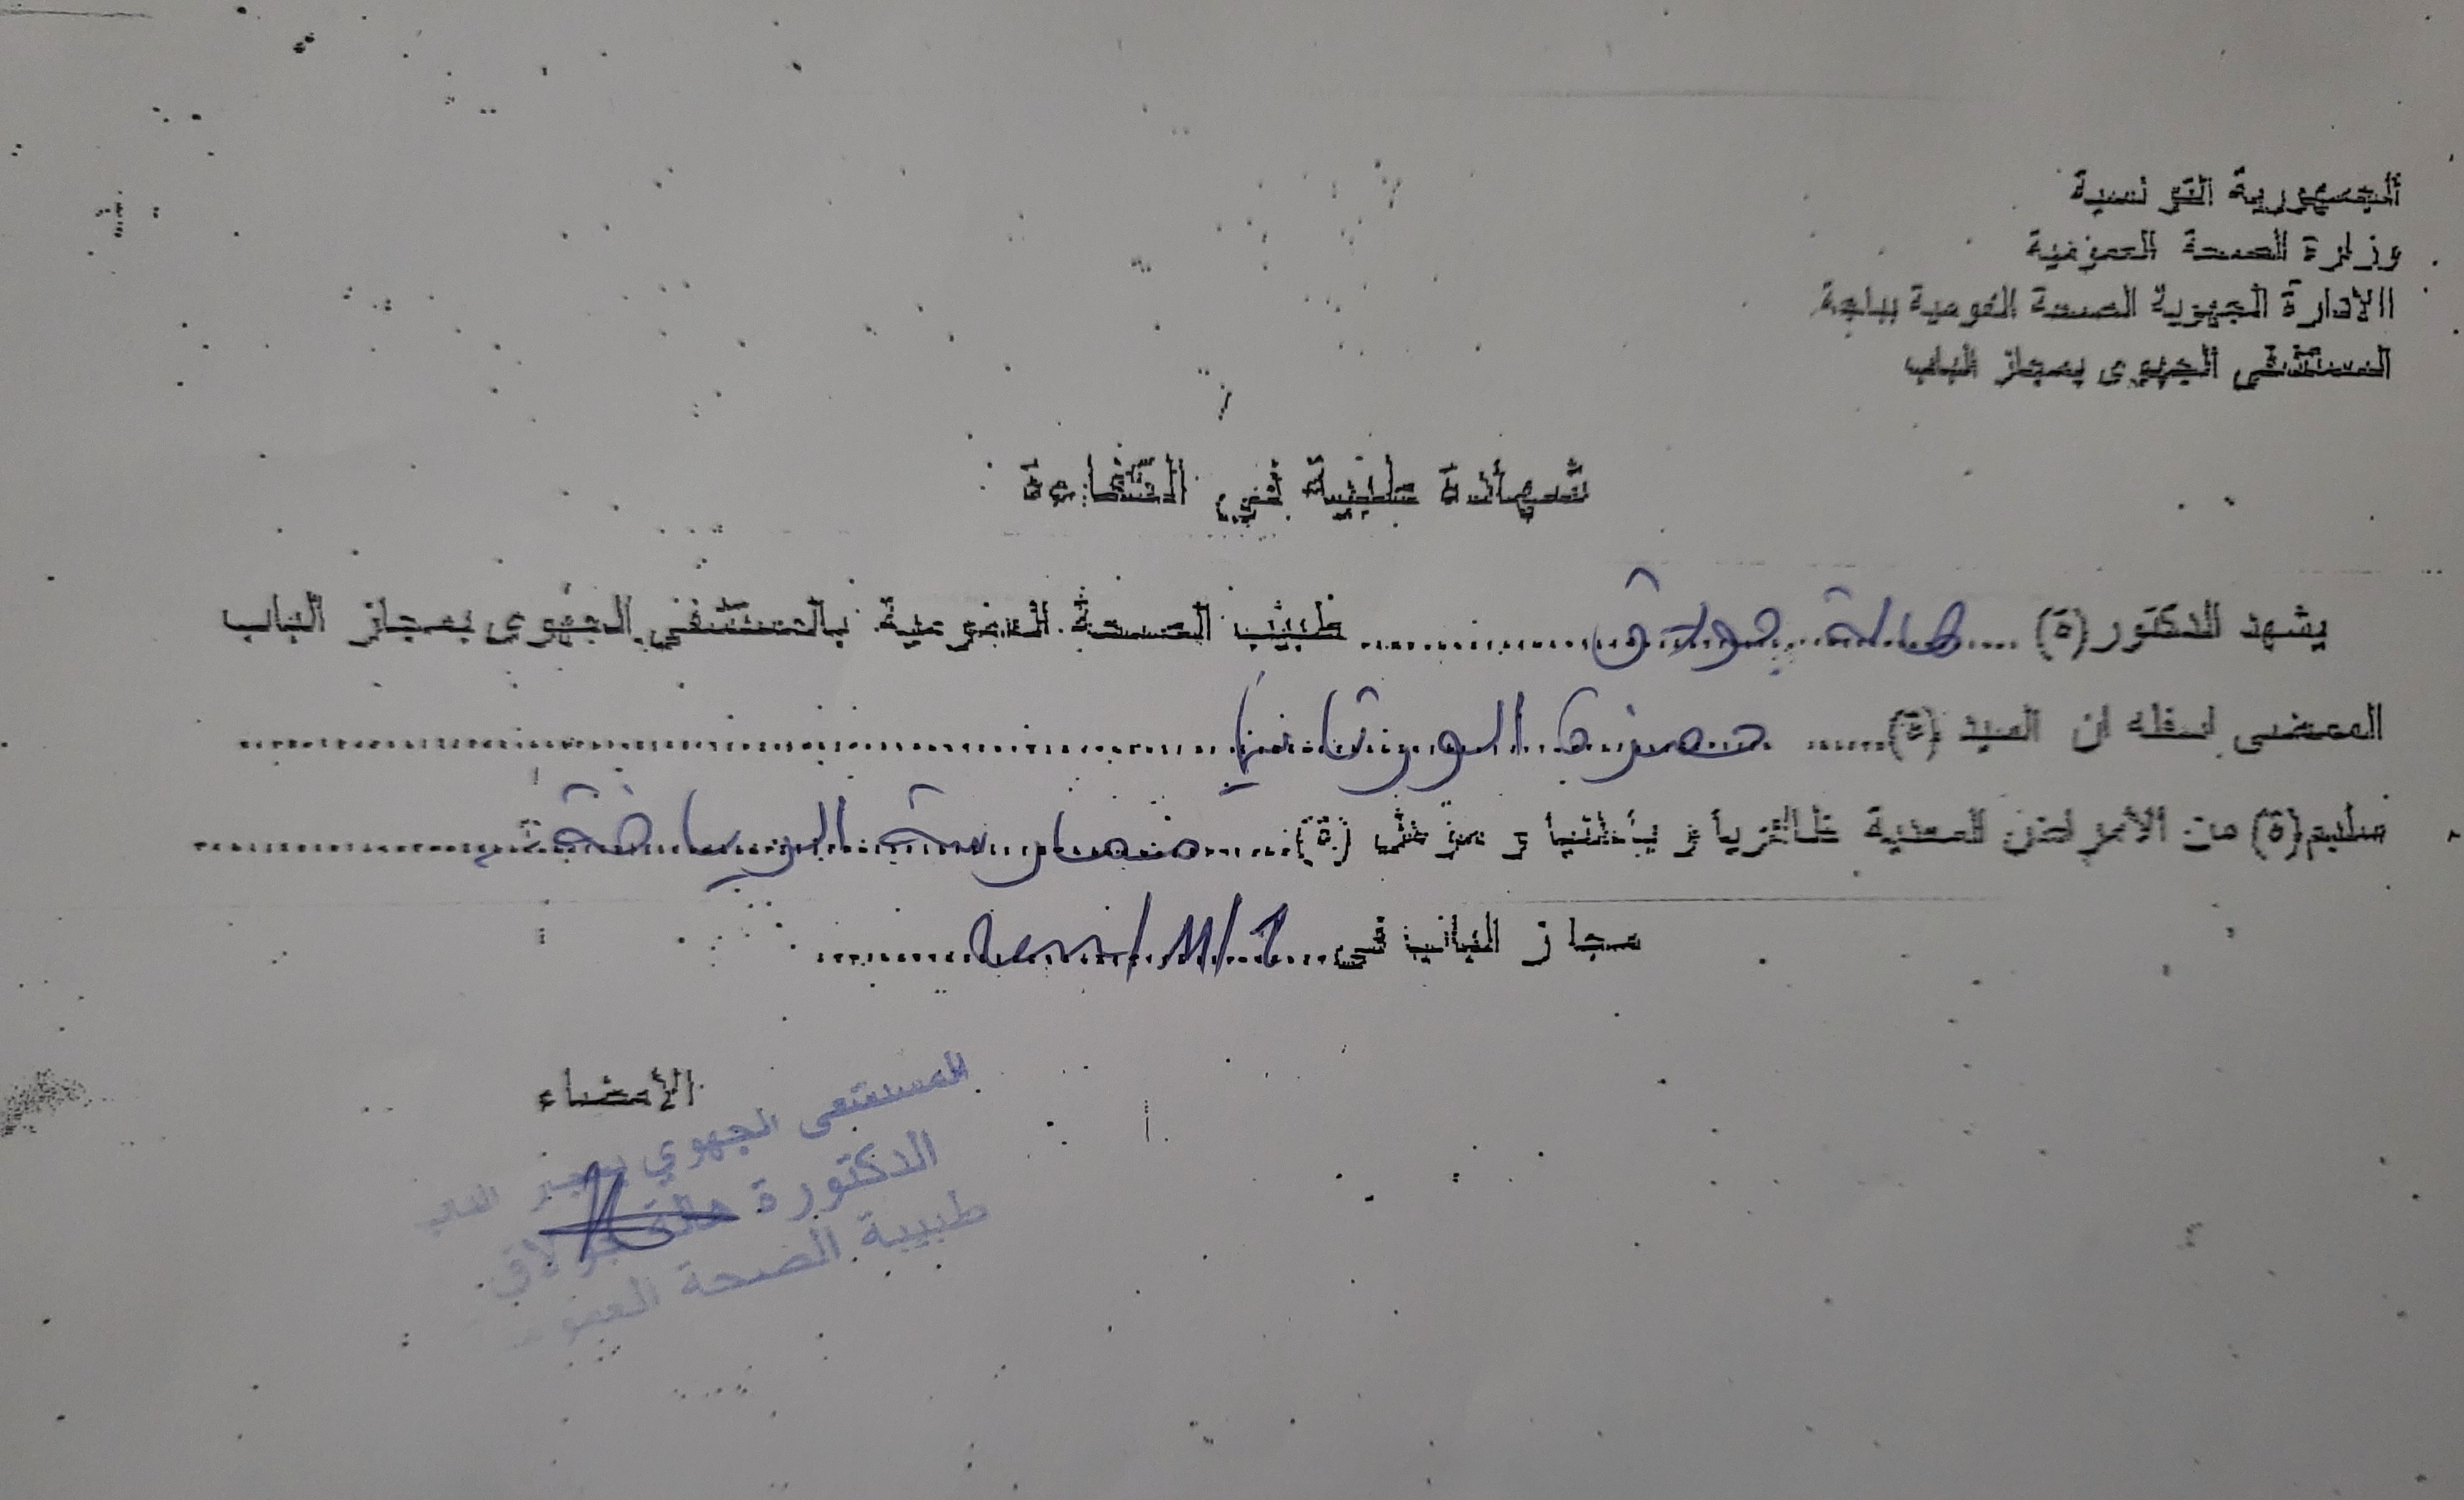 الجمهورية التونسية
وزارة الصحة العمومية
الادارة الجهوية الصحة العومية بباجة
المستشفى الجهوى بمجاز الباب
شهادة طبية في الكفاءة
يشهد الدكتور (ة) .... هالة جولاق .................. طبيب الصحة العمومية بالمستشفى الجهوى بمجاز الباب
الممضى اسفله ان السيد (ة) ...... حمزة الورتاني ..................
سليم (ة) من الأمراض المعدية ظاهريا و باطنيا و مؤهل (ة) ...... ممارسة الرياضة ..................
مجاز الباب في ....
الأمضاء
المستشفى الجهوي بمجاز الباب
الدكتورة هالة جولاق
طبيبة الصحة